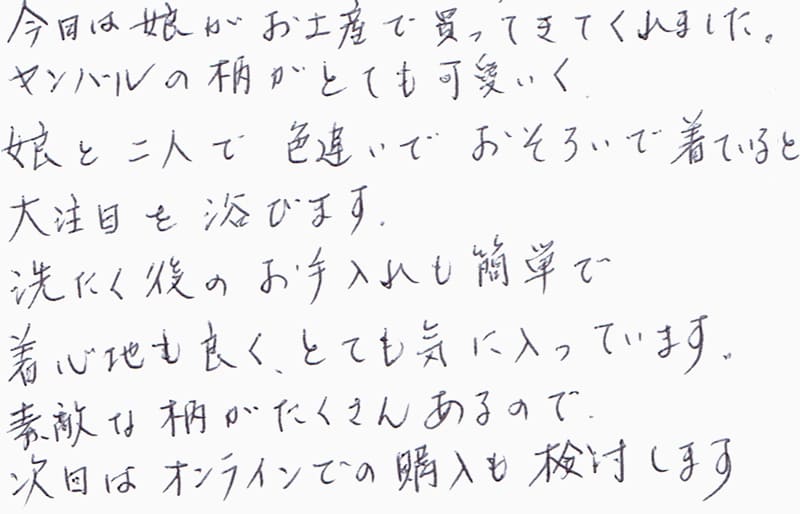 今回は娘がお土産で買ってきてくれました。
ヤンバルの柄がとても可愛いく
娘と二人で 色違いで おそろいで着ていると
大注目を浴びます。
洗たく後のお手入れも簡単で
着心地も良く、とても気に入っています。
素敵な柄がたくさんあるので、
次回はオンラインでの購入も検討します